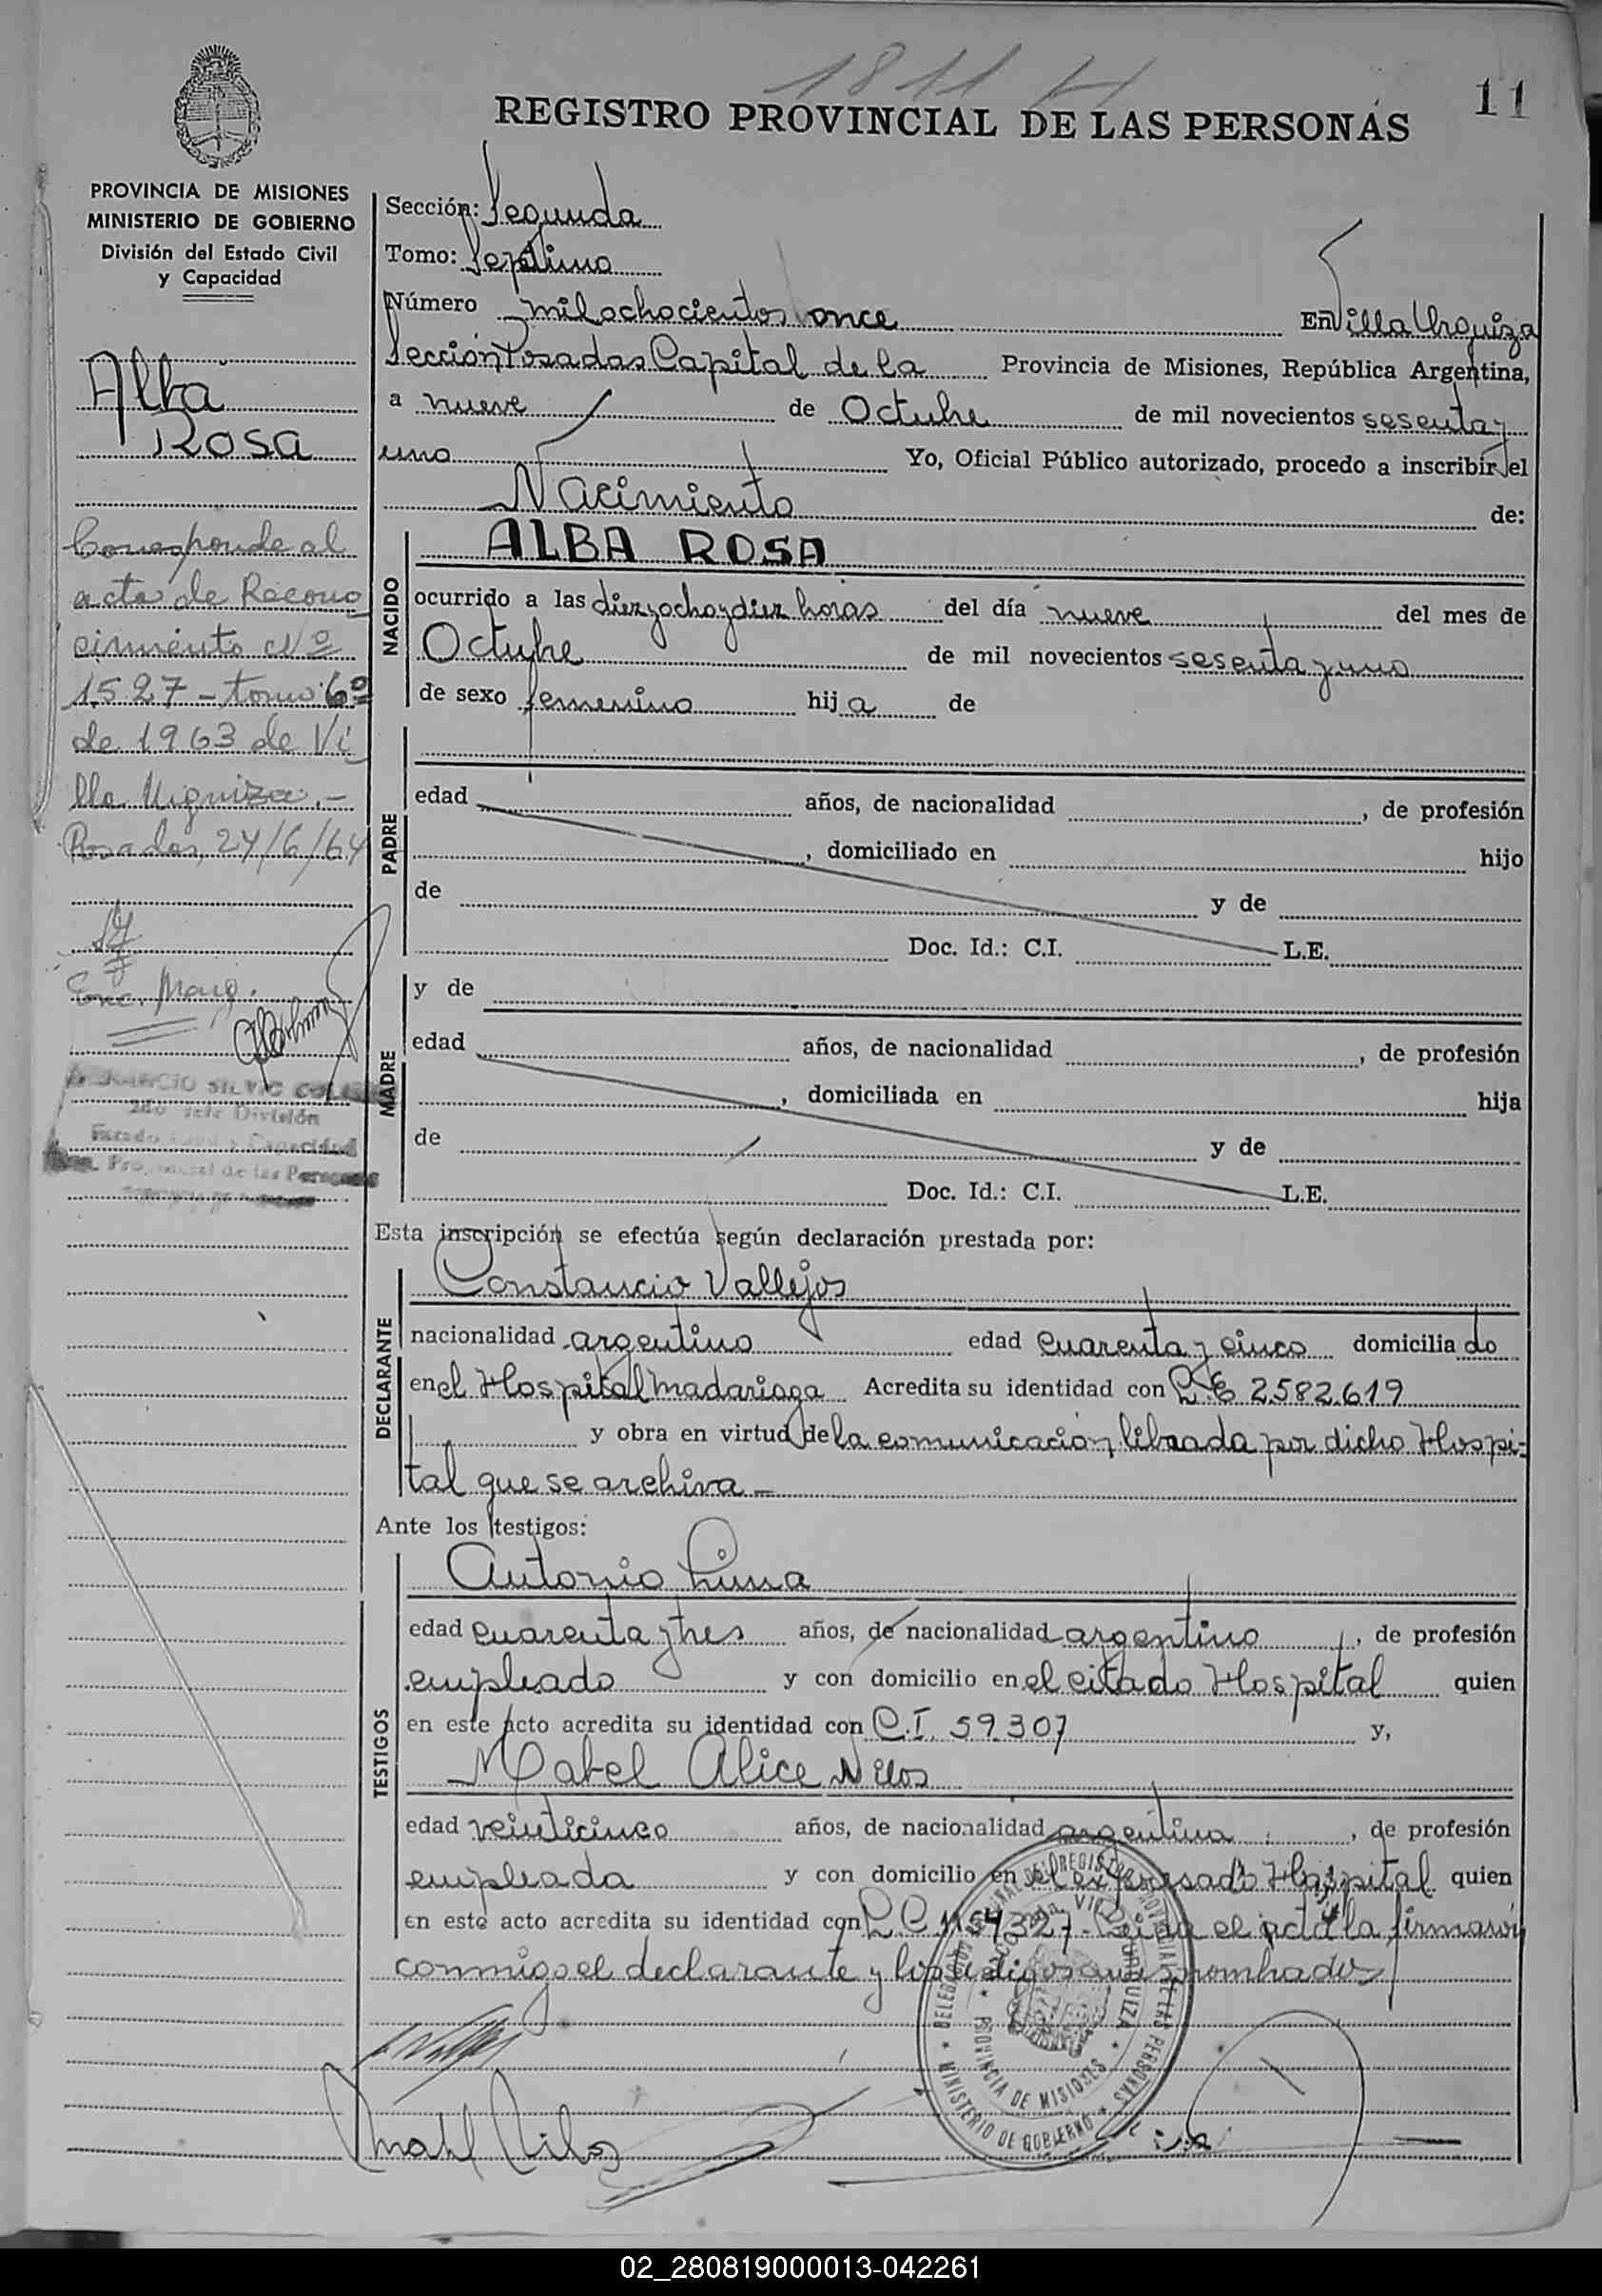 1811 H
11
REGISTRO PROVINCIAL DE LAS PERSONAS
PROVINCIA DE MISIONES
MINISTERIO DE GOBIERNO
División del Estado Civil
y Capacidad
Alba
Rosa
Corresponde al
acta de Recono
cimiento Nº
1527 - tomo 6º
de 1963 de Vi
lla Urquiza.-
Posadas, 24/6/64
Enc. Marg.
2do Jefe División
Estado Civil y Capacidad
Reg. Provincial de las Personas
Sección: Segunda
Tomo: Septimo
Número milochocientos once En Villa Urquiza
Sección Posadas Capital de la Provincia de Misiones, República Argentina,
a nueve de Octubre de mil novecientos sesenta y
uno Yo, Oficial Público autorizado, procedo a inscribir el
Nacimiento de:
NACIDO
ALBA ROSA
ocurrido a las diezyochoydiez horas del día nueve del mes de
Octubre de mil novecientos sesenta y uno
de sexo femenino hija de
PADRE
edad años, de nacionalidad , de profesión
, domiciliado en hijo
de y de
Doc. Id.: C.I. L.E.
MADRE
y de
edad años, de nacionalidad , de profesión
, domiciliada en hija
de y de
Doc. Id.: C.I. L.E.
Esta inscripción se efectúa según declaración prestada por:
DECLARANTE
Constancio Vallejos
nacionalidad argentino edad cuarenta y cinco domiciliado
en el Hospital Madariaga Acredita su identidad con L.E 2.582.619
y obra en virtud de la comunicación librada por dicho Hospi-
tal que se archiva -
Ante los testigos:
TESTIGOS
Antonio Lima
edad cuarenta y tres años, de nacionalidad argentino, de profesión
empleado y con domicilio en el citado Hospital quien
en este acto acredita su identidad con C.I. 59.307 y,
Mabel Alice Nilos
edad veinticinco años, de nacionalidad argentina, de profesión
empleada y con domicilio en el expresado Hospital quien
en este acto acredita su identidad con L.C. 1154327 - Leida el acta la firmaron
conmigo el declarante y los testigos antes nombrados
DELEGACION REGISTRO PROVINCIAL DE LAS PERSONAS
VILLA URQUIZA
PROVINCIA DE MISIONES
MINISTERIO DE GOBIERNO
Mabel Nilos
02_280819000013-042261